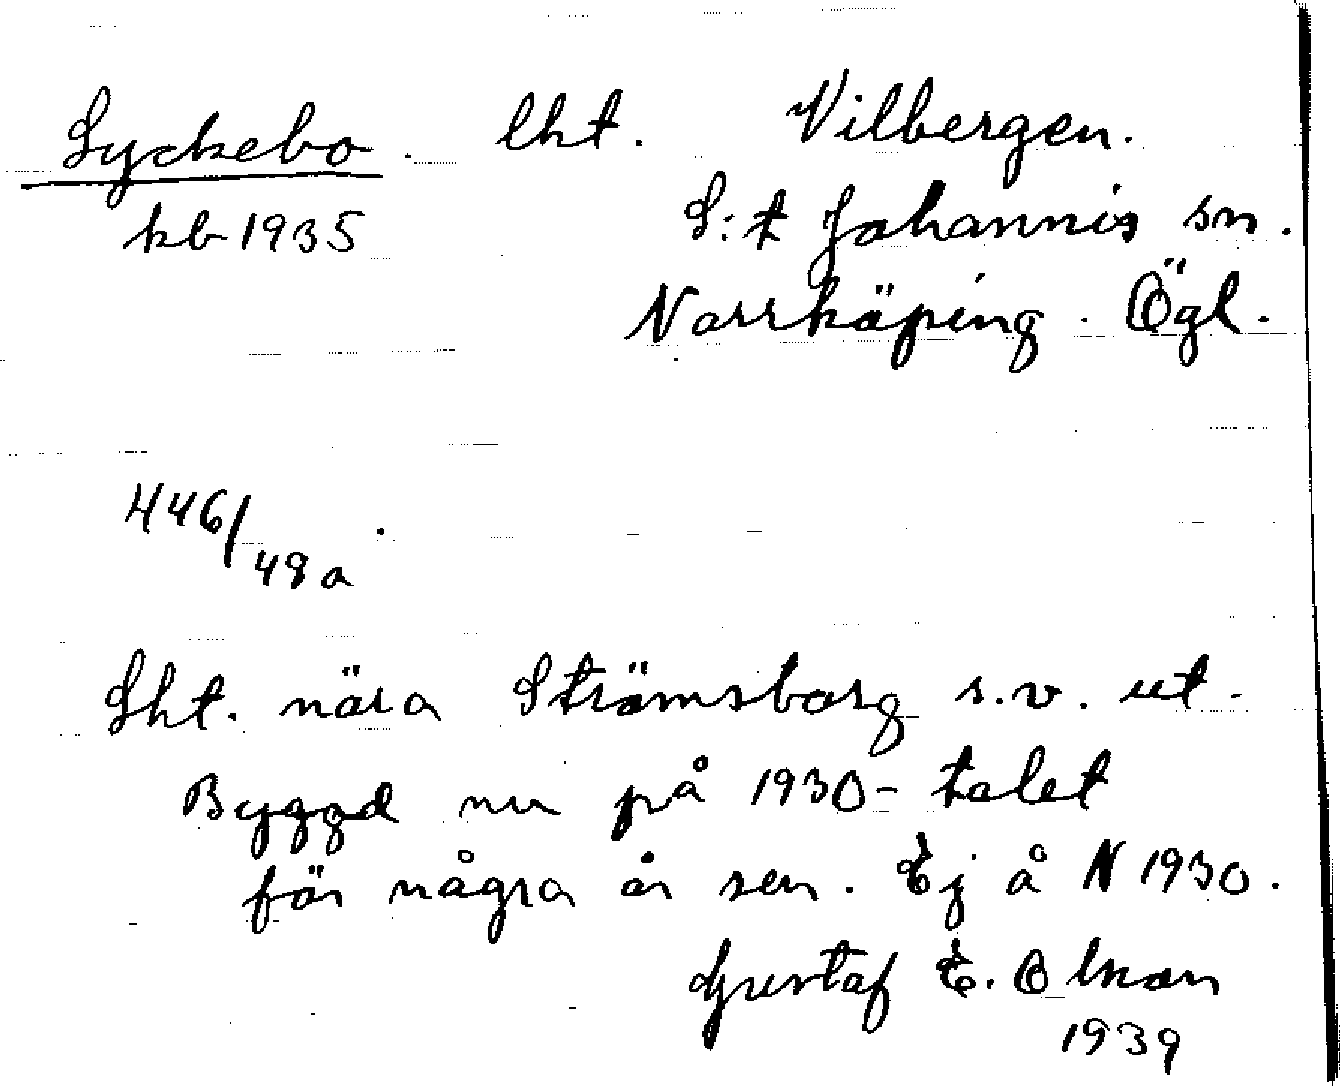 Lyckebo. lht. Vilbergen.
kb 1935 S:t Johannis sn.
Norrköping. Ögl.
446/48a
Lht. nära Strömsborg s.v. ut-
Byggd nu på 1930-talet
för några år sen. Ej å N 1930.
Gustaf E. Olson
1939